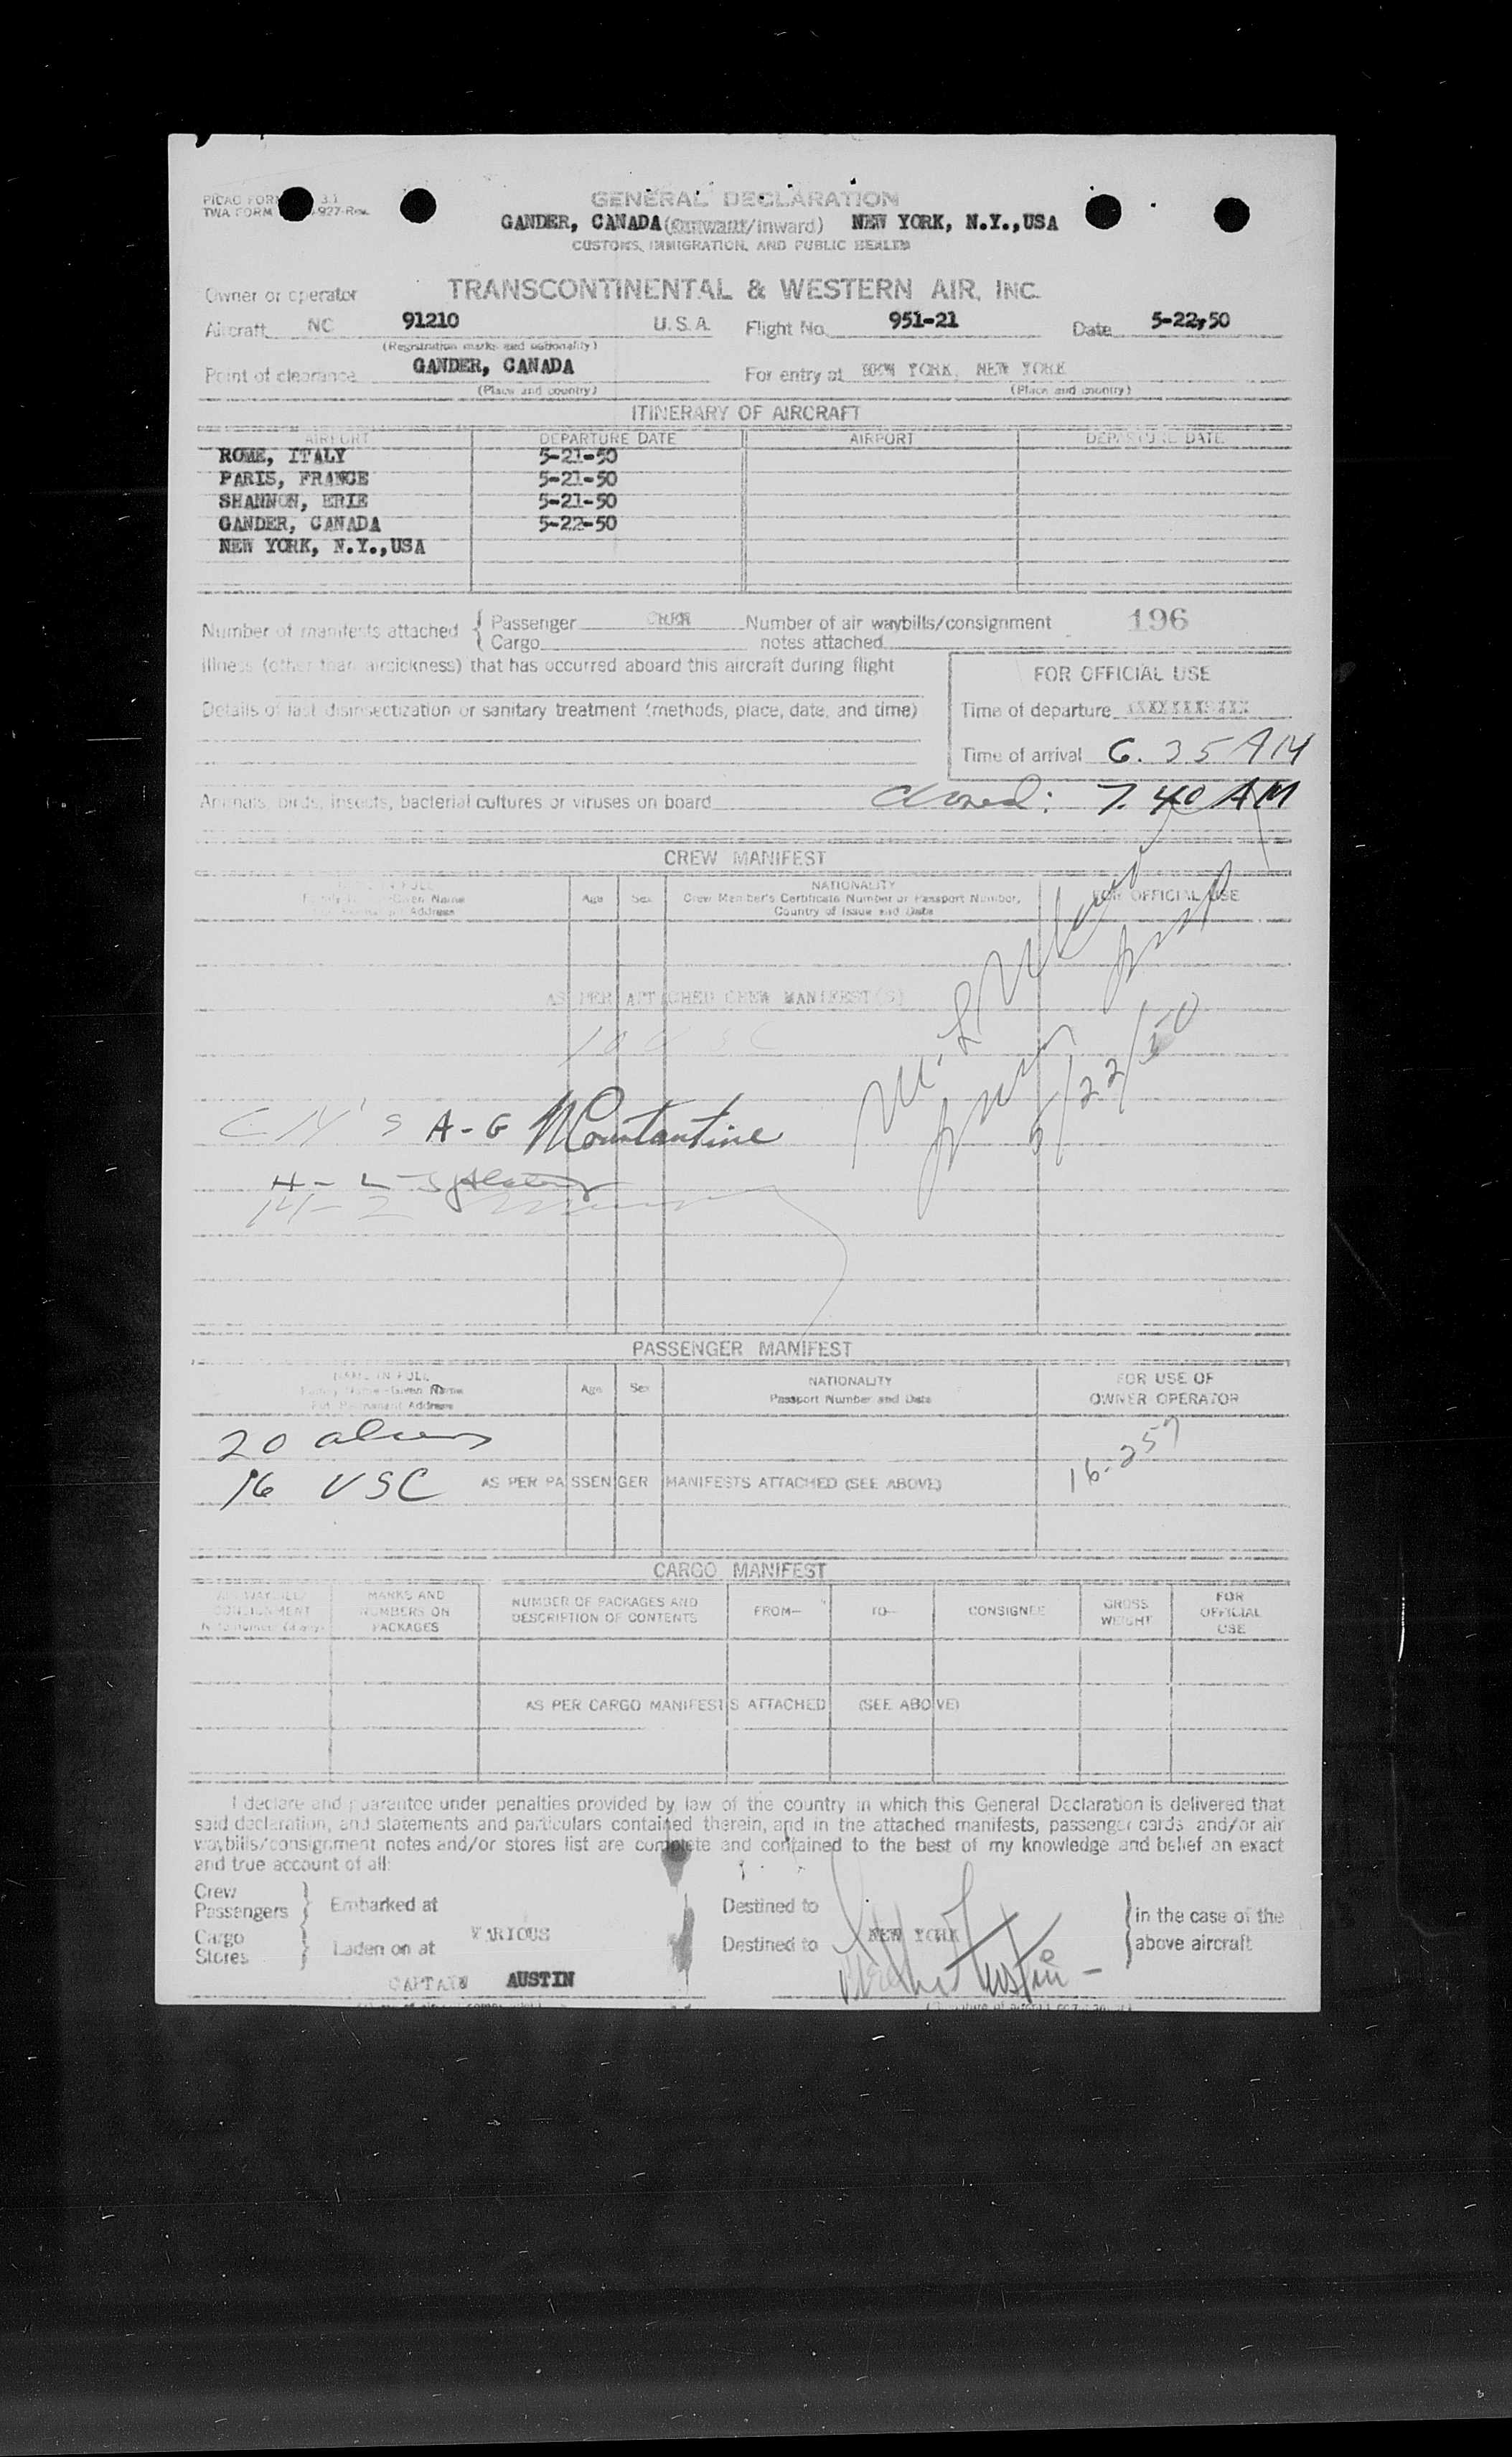 PICAO FORM 3.1
TWA FORM -927-Rev.
GENERAL DECLARATION
GANDER, CANADA (Outward/Inward) NEW YORK, N.Y.,USA
CUSTOMS, IMMIGRATION, AND PUBLIC HEALTH
Owner or operator TRANSCONTINENTAL & WESTERN AIR, INC.
Aircraft NC 91210 U.S.A. Flight No. 951-21 Date 5-22-50
(Registration marks and nationality)
Point of clearance GANDER, CANADA For entry at NEW YORK, NEW YORK
(Place and country) (Place and country)
ITINERARY OF AIRCRAFT
AIRPORT DEPARTURE DATE AIRPORT DEPARTURE DATE
ROME, ITALY 5-21-50
PARIS, FRANCE 5-21-50
SHANNON, ERIE 5-21-50
GANDER, CANADA 5-22-50
NEW YORK, N.Y.,USA
Number of manifests attached { Passenger CREW Number of air waybills/consignment 196
Cargo notes attached
Illness (other than airsickness) that has occurred aboard this aircraft during flight
FOR OFFICIAL USE
Details of last disinsectization or sanitary treatment (methods, place, date, and time)
Time of departure XXXXXXXXXXX
Time of arrival 6.35 AM
Animals, birds, insects, bacterial cultures or viruses on board closed: 7.40 AM
CREW MANIFEST
NAME IN FULL Age Sex NATIONALITY FOR OFFICIAL USE
Family Name-Given Name Crew Member's Certificate Number or Passport Number,
Permanent Address Country of Issue and Date
AS PER ATTACHED CREW MANIFEST(S)
10 USC
5/22/50
A-G
H-L
M-Z
PASSENGER MANIFEST
NAME IN FULL Age Sex NATIONALITY FOR USE OF
Family Name-Given Name Passport Number and Date OWNER OPERATOR
Full Permanent Address
20 aliens
16 USC AS PER PASSENGER MANIFESTS ATTACHED (SEE ABOVE) 16-257
CARGO MANIFEST
AIR WAYBILL/ MARKS AND NUMBER OF PACKAGES AND FROM— TO— CONSIGNEE GROSS FOR
CONSIGNMENT NUMBERS ON DESCRIPTION OF CONTENTS WEIGHT OFFICIAL
PACKAGES USE
AS PER CARGO MANIFESTS ATTACHED (SEE ABOVE)
I declare and guarantee under penalties provided by law of the country in which this General Declaration is delivered that
said declaration, and statements and particulars contained therein, and in the attached manifests, passenger cards and/or air
waybills/consignment notes and/or stores list are complete and contained to the best of my knowledge and belief an exact
and true account of all:
Crew
Passengers } Embarked at Destined to } in the case of the
Cargo VARIOUS NEW YORK
Stores } Laden on at Destined to above aircraft
CAPTAIN AUSTIN Austin